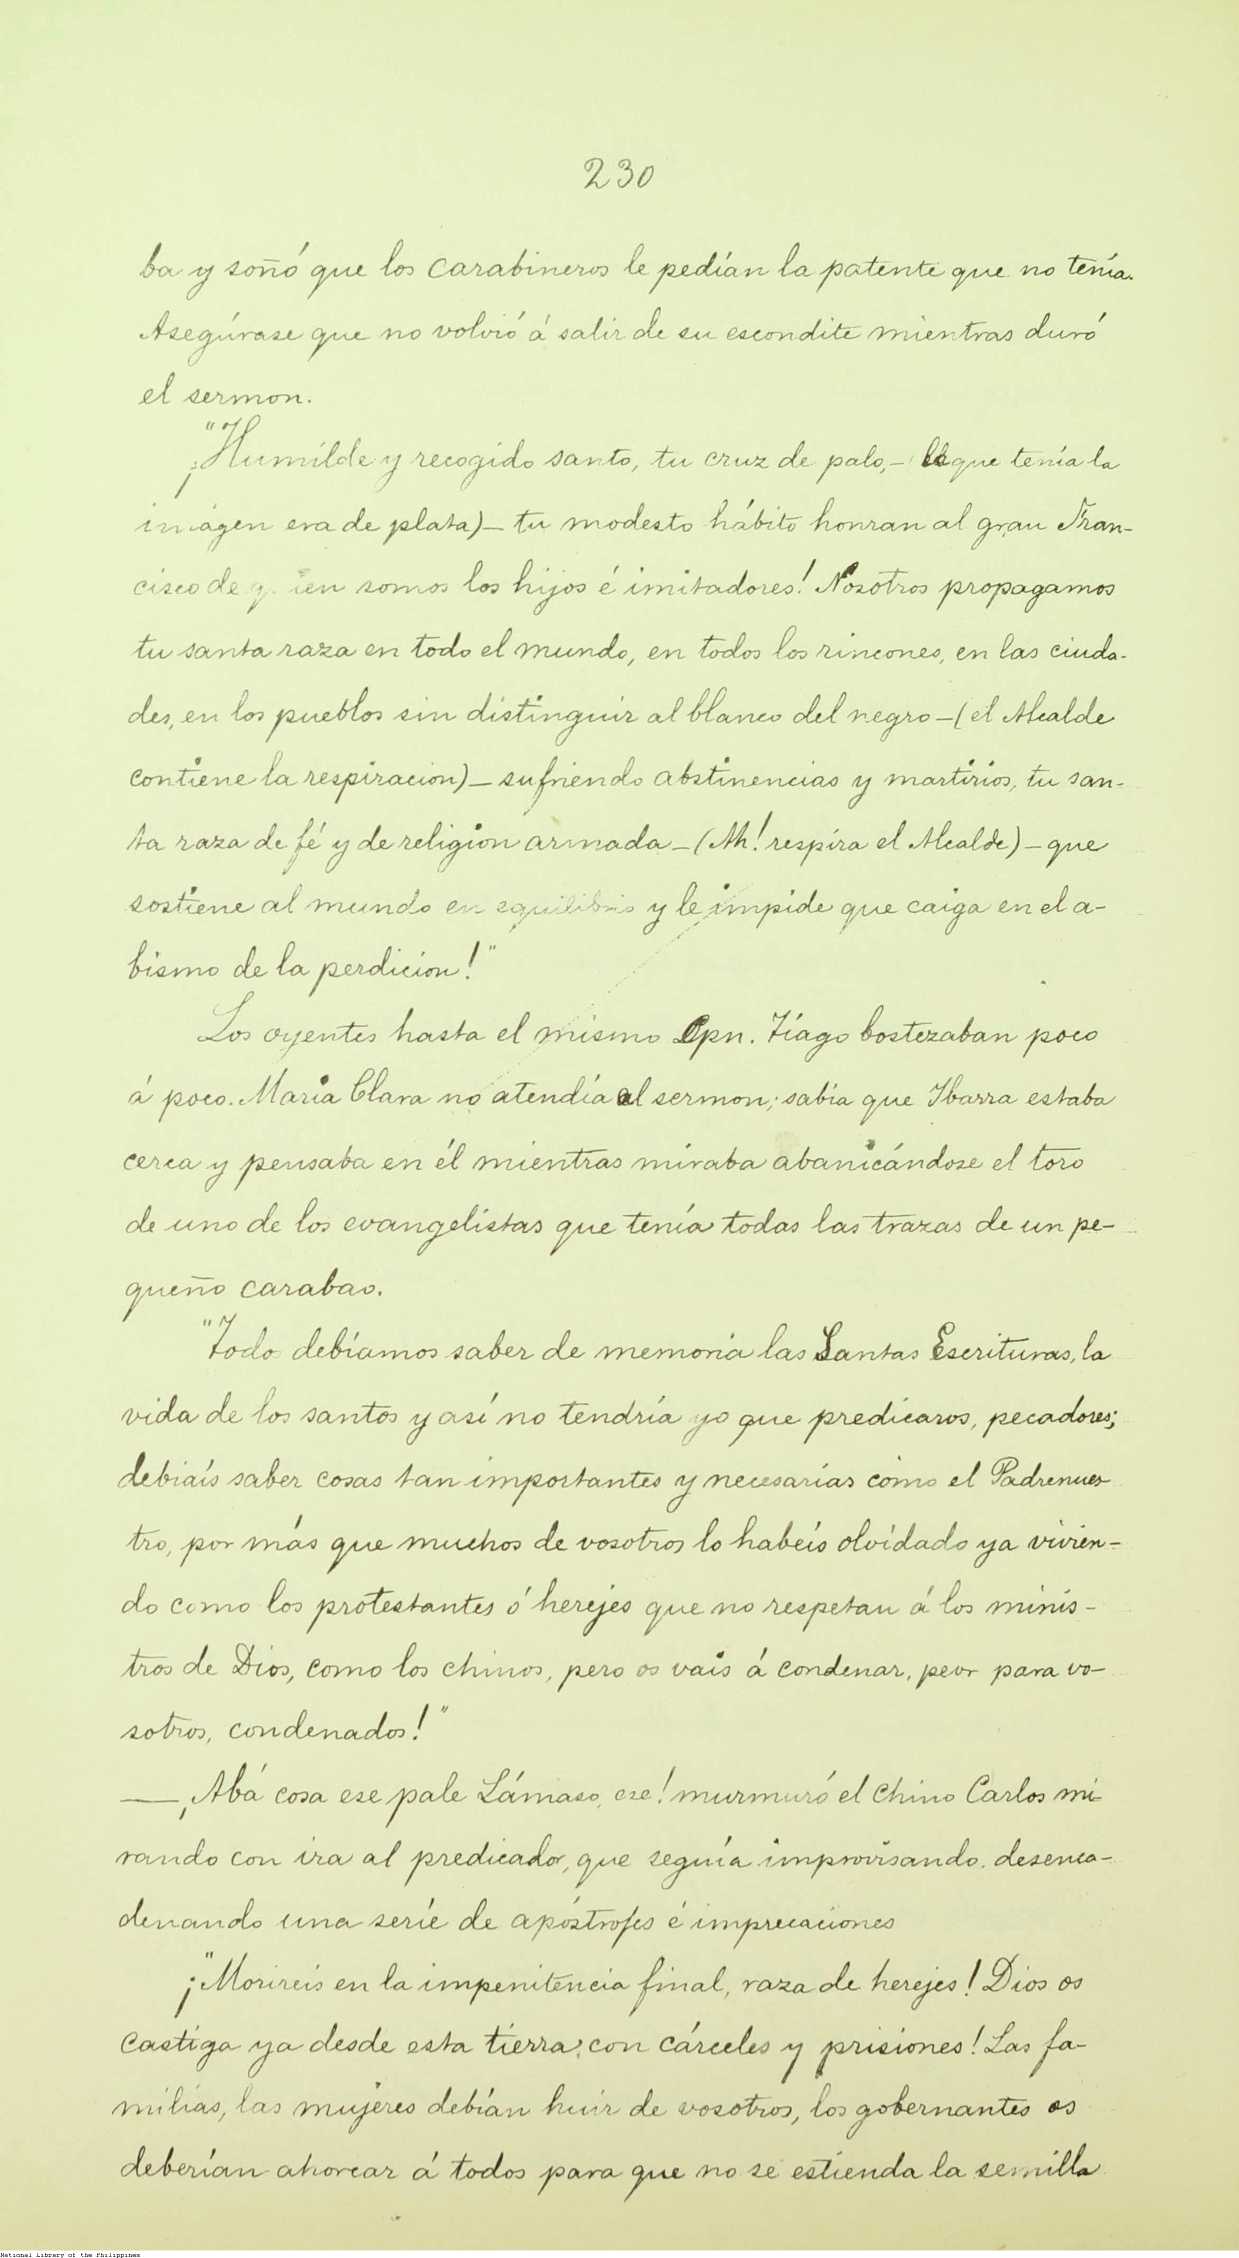 230
ba y soñó que los carabineros le pedían la patente que no tenía.
Asegúrase que no volvió á salir de su escondite mientras duró
el sermon.
"¡Humilde y recogido santo, tu cruz de palo,- que tenía la
imágen era de plata)- tu modesto hábito honran al gran Fran-
cisco de quien somos los hijos é imitadores! Nosotros propagamos
tu santa raza en todo el mundo, en todos los rincones, en las ciuda-
des, en los pueblos sin distinguir al blanco del negro -(el Alcalde
contiene la respiracion)- sufriendo abstinencias y martirios, tu san-
ta raza de fé y de religion armada -(Ah! respira el Alcalde)- que
sostiene al mundo en equilibrio y le impide que caiga en el a-
bismo de la perdicion!"
Los oyentes hasta el mismo Cpn. Tiago bostezaban poco
á poco. María Clara no atendía al sermon; sabía que Ibarra estaba
cerca y pensaba en él mientras miraba abanicándose el toro
de uno de los evangelistas que tenía todas las trazas de un pe-
queño carabao.
"Todo debíamos saber de memoria las Santas Escrituras, la
vida de los santos y así no tendría yo que predicaros, pecadores;
debiaís saber cosas tan importantes y necesarias como el Padrenues
tro, por más que muchos de vosotros lo habeis olvidado ya vivien-
do como los protestantes ó herejes que no respetan á los minis-
tros de Dios, como los chinos, pero os vais á condenar, peor para vo-
sotros, condenados!"
—¡Abá cosa ese pale Lámaso, ese! murmuró el chino Carlos mi-
rando con ira al predicador, que seguía improvisando, desenca-
denando una serie de apóstrofes é imprecaciones
"¡Morireis en la impenitencia final, raza de herejes! Dios os
castiga ya desde esta tierra con cárceles y prisiones! Las fa-
milias, las mujeres debían huir de vosotros, los gobernantes os
deberían ahorcar á todos para que no se estienda la semilla
National Library of the Philippines